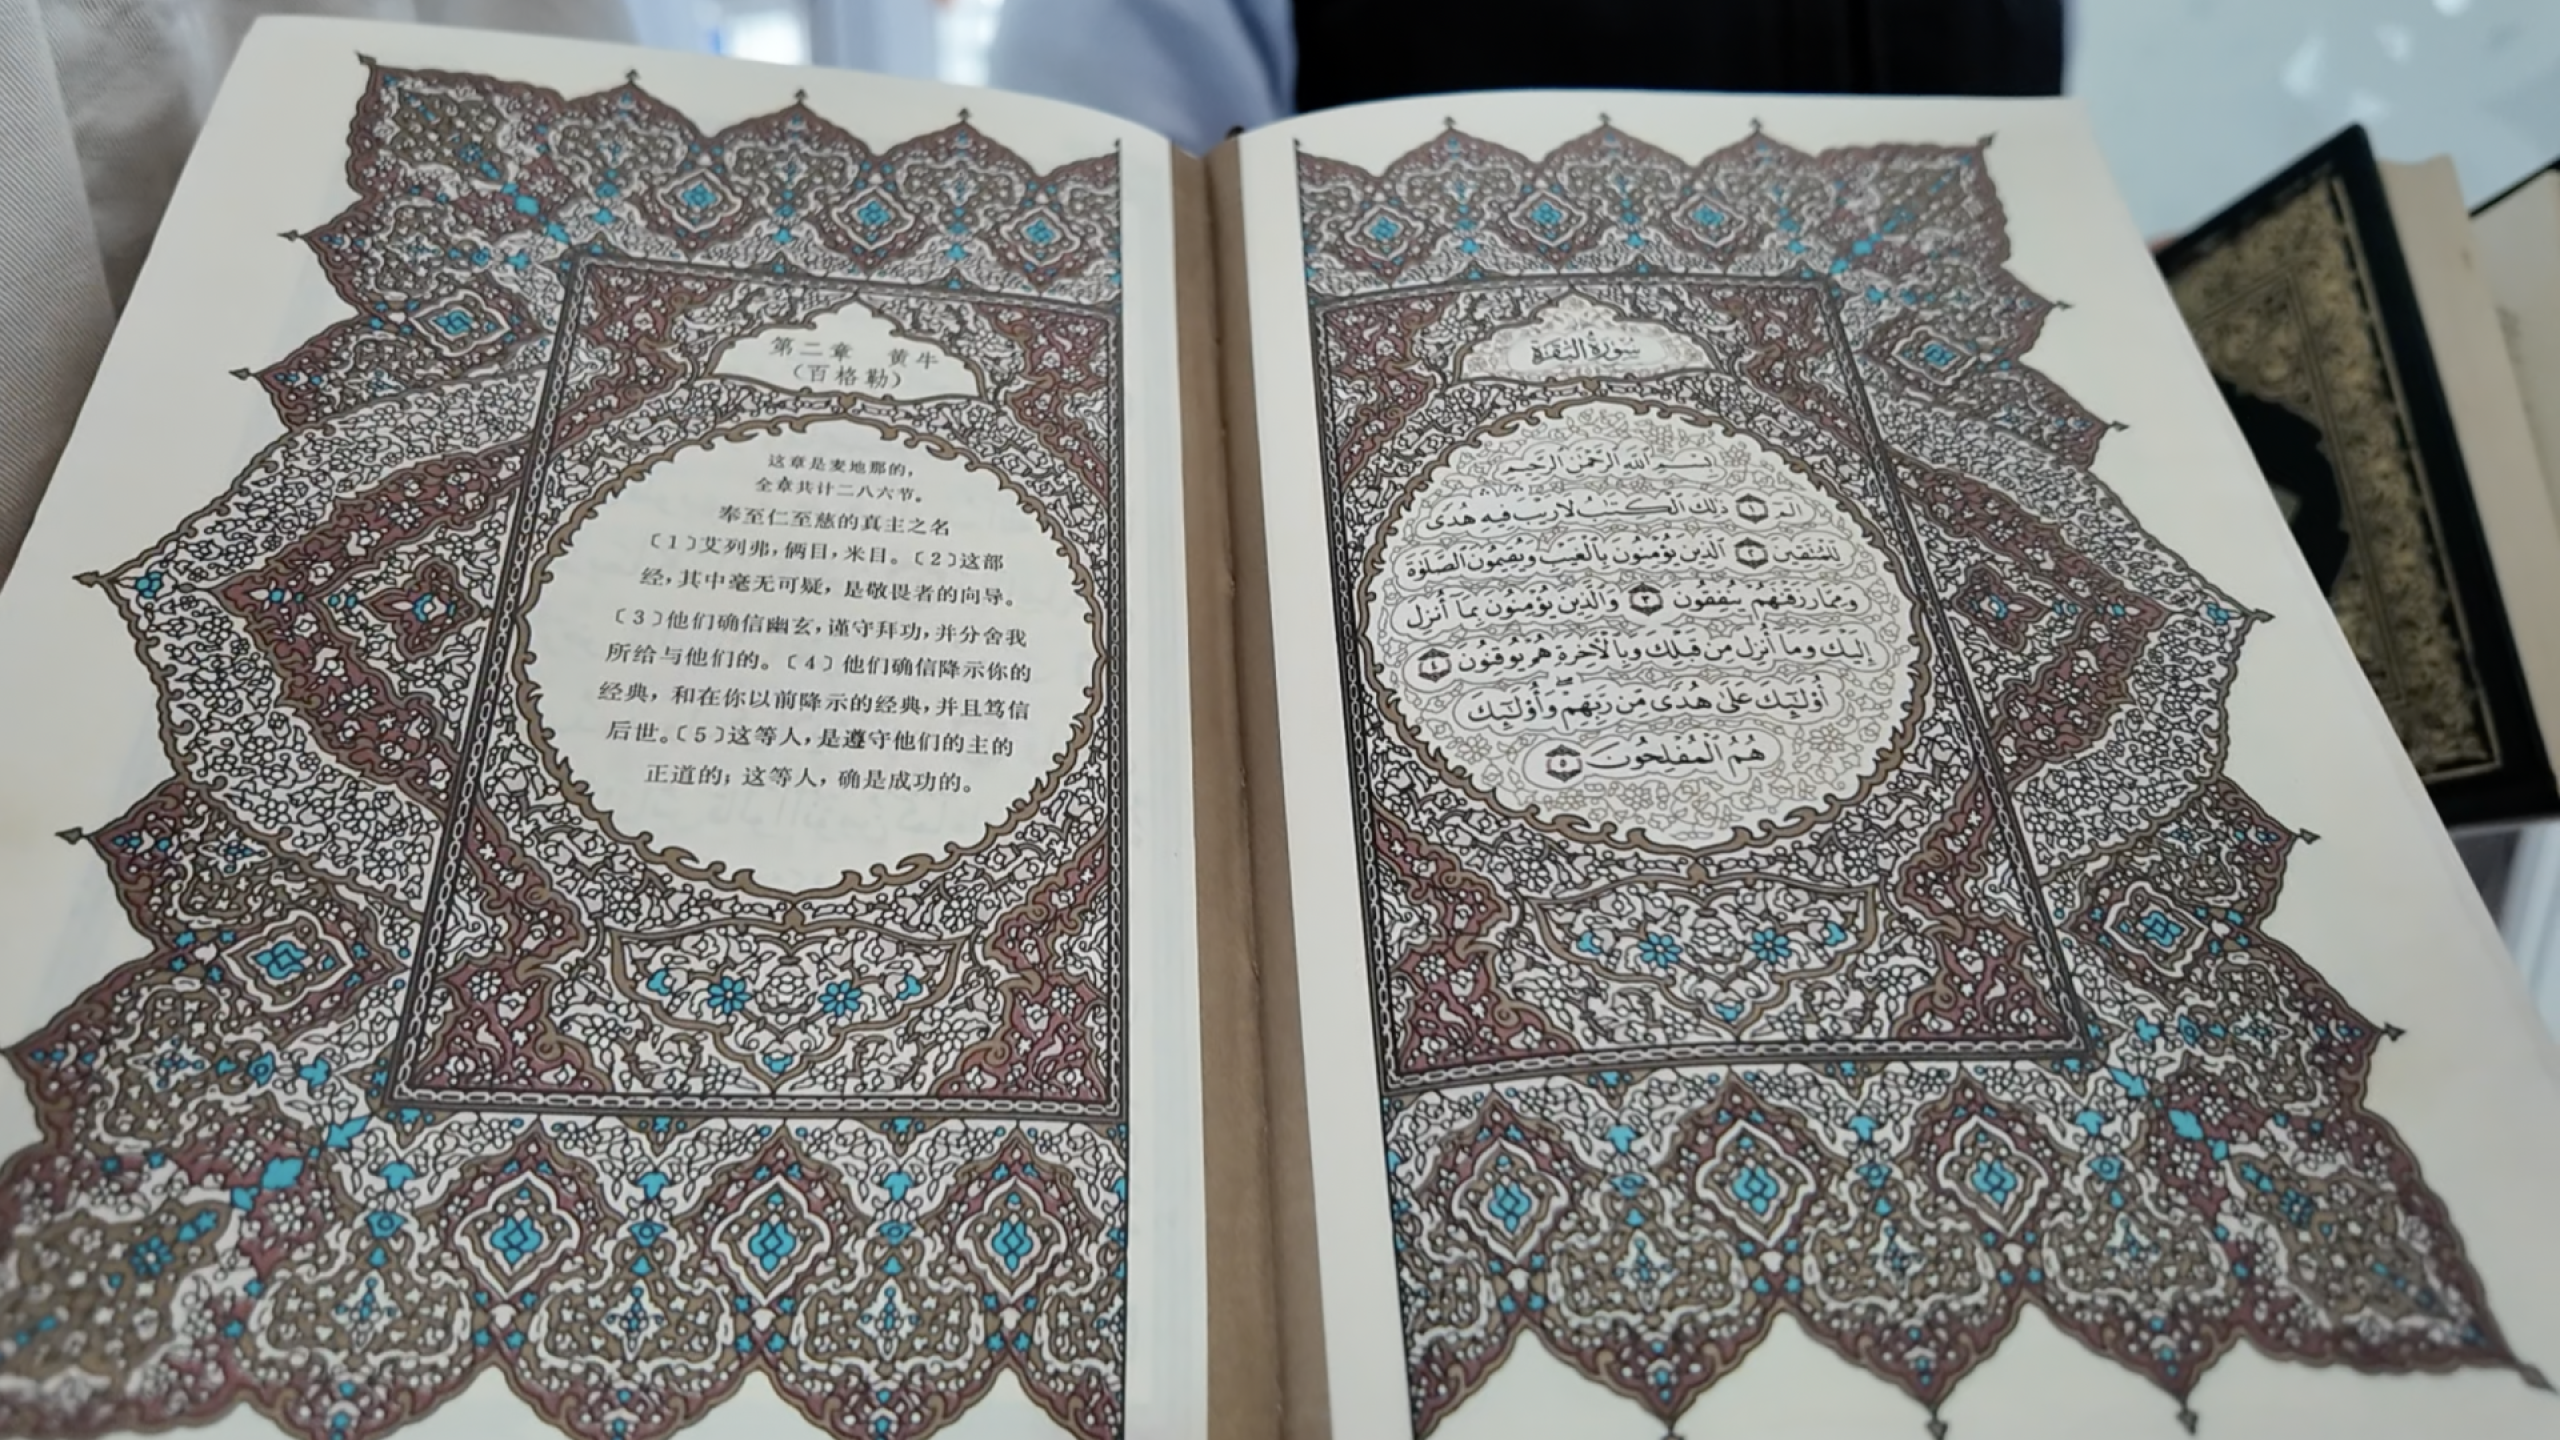 第二章 黄牛
（百格勒）
这章是麦地那的，
全章共计二八六节。
奉至仁至慈的真主之名
〔1〕艾列弗，俩目，米目。〔2〕这部
经，其中毫无可疑，是敬畏者的向导。
〔3〕他们确信幽玄，谨守拜功，并分舍我
所给与他们的。〔4〕他们确信降示你的
经典，和在你以前降示的经典，并且笃信
后世。〔5〕这等人，是遵守他们的主的
正道的；这等人，确是成功的。
سُورَةُ الْبَقَرَةِ
بِسْمِ اللَّهِ الرَّحْمَٰنِ الرَّحِيمِ
الٓمٓ ۝١ ذَٰلِكَ الْكِتَابُ لَا رَيْبَ فِيهِ هُدًى
لِّلْمُتَّقِينَ ۝٢ الَّذِينَ يُؤْمِنُونَ بِالْغَيْبِ وَيُقِيمُونَ الصَّلَوٰةَ
وَمِمَّا رَزَقْنَٰهُمْ يُنفِقُونَ ۝٣ وَالَّذِينَ يُؤْمِنُونَ بِمَا أُنزِلَ
إِلَيْكَ وَمَا أُنزِلَ مِن قَبْلِكَ وَبِالْآخِرَةِ هُمْ يُوقِنُونَ ۝٤
أُولَٰئِكَ عَلَىٰ هُدًى مِّن رَّبِّهِمْ وَأُولَٰئِكَ
هُمُ الْمُفْلِحُونَ ۝٥